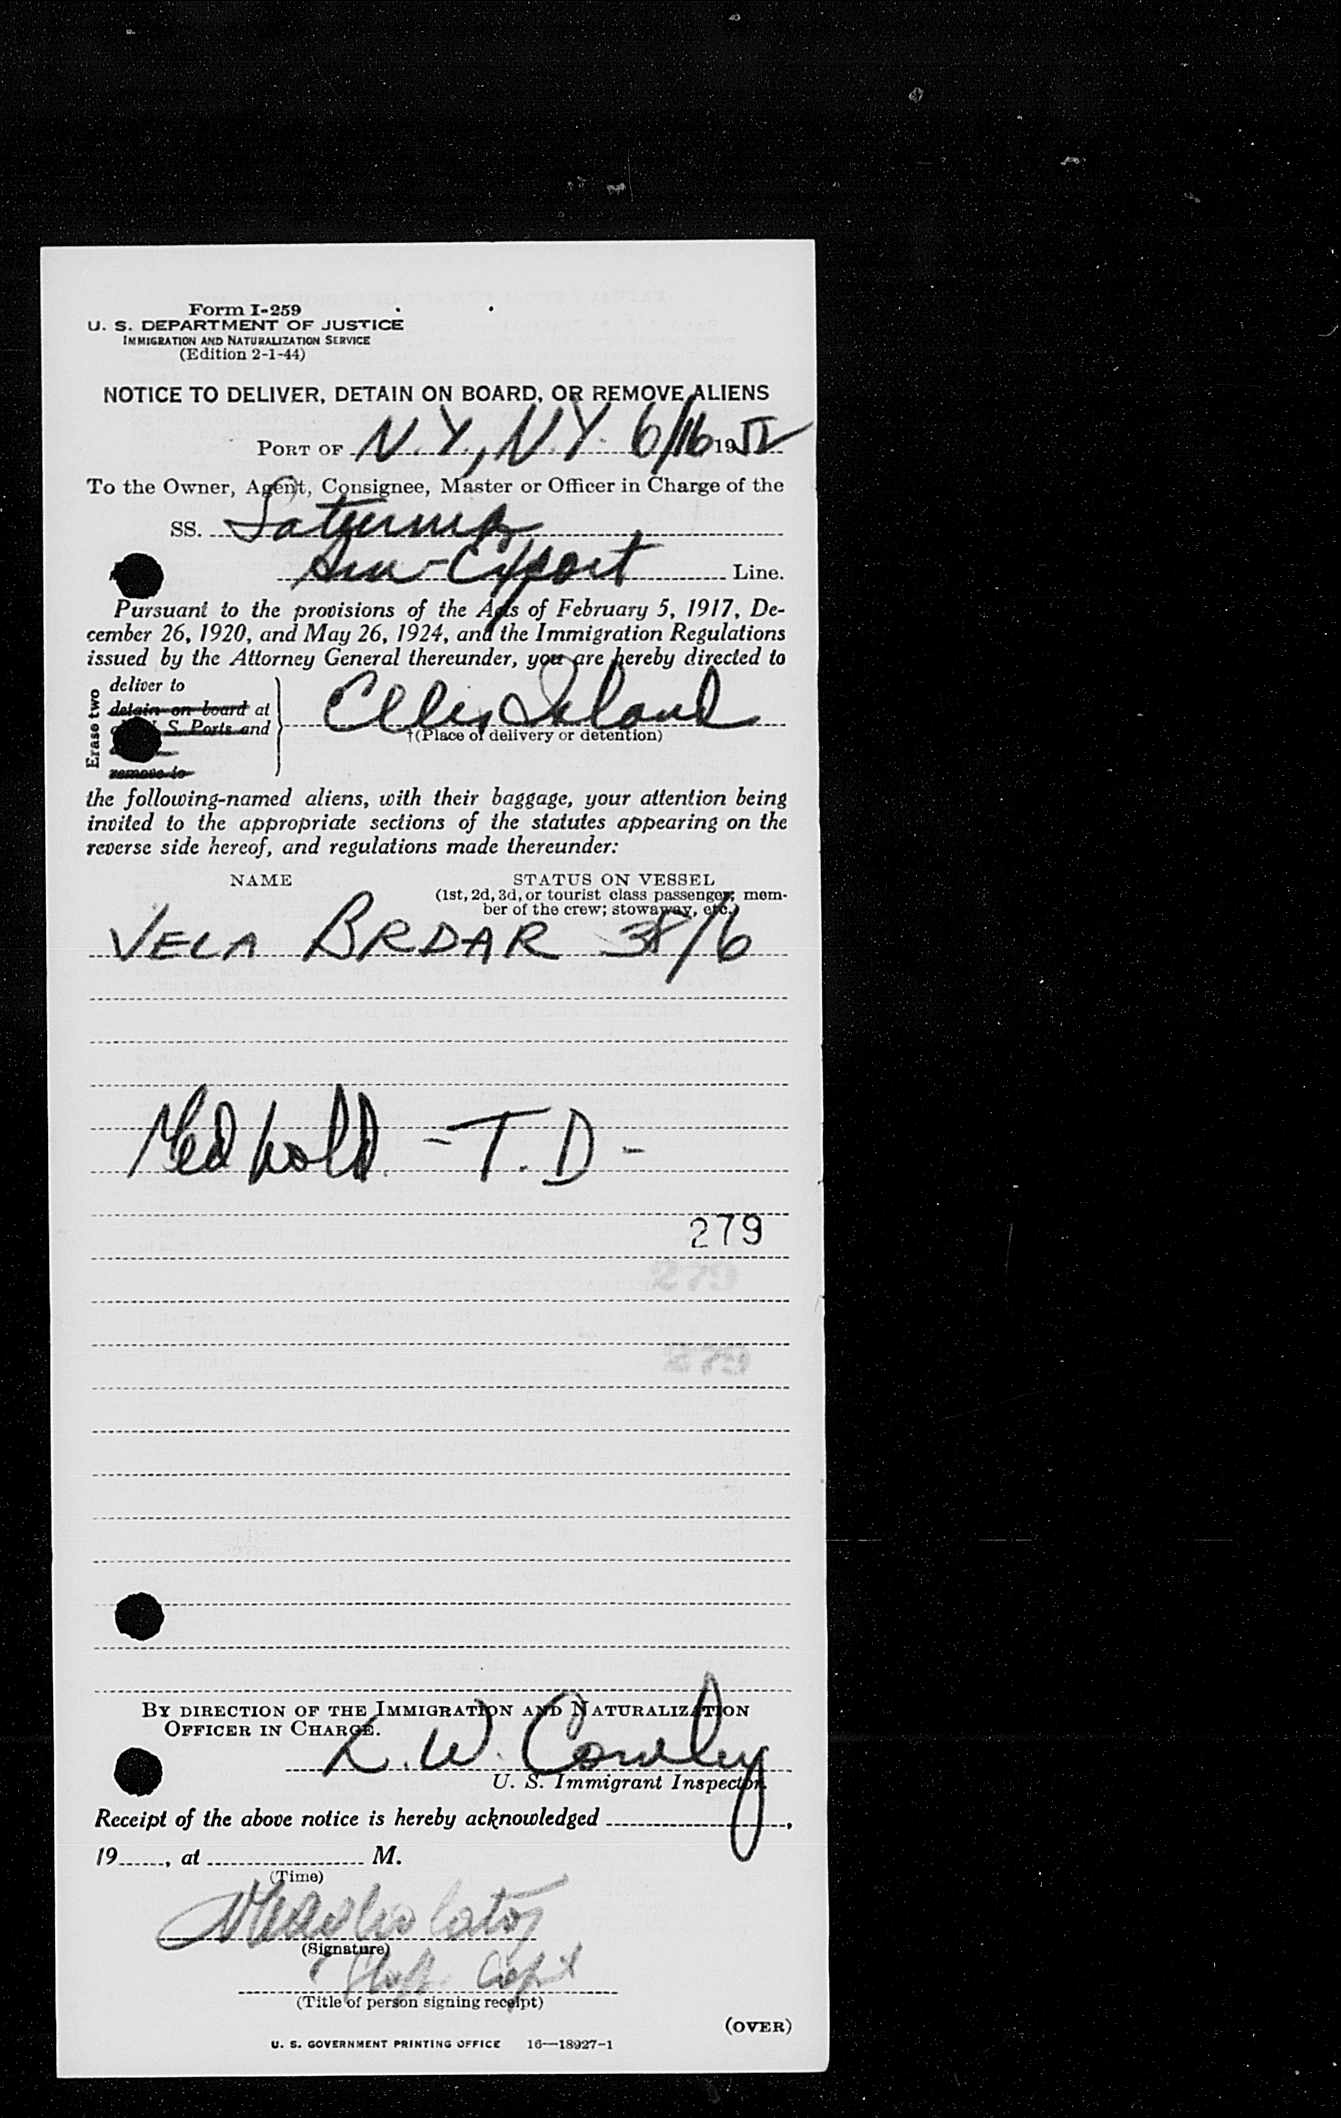 Form I-259
U. S. DEPARTMENT OF JUSTICE
IMMIGRATION AND NATURALIZATION SERVICE
(Edition 2-1-44)
NOTICE TO DELIVER, DETAIN ON BOARD, OR REMOVE ALIENS
PORT OF N.Y., N.Y. 6/16 1952
To the Owner, Agent, Consignee, Master or Officer in Charge of the
SS. Saturnia
Am-Export Line.
Pursuant to the provisions of the Acts of February 5, 1917, De-
cember 26, 1920, and May 26, 1924, and the Immigration Regulations
issued by the Attorney General thereunder, you are hereby directed to
Erase two
deliver to
detain on board at
S. Ports and
remove to
Ellis Island
†(Place of delivery or detention)
the following-named aliens, with their baggage, your attention being
invited to the appropriate sections of the statutes appearing on the
reverse side hereof, and regulations made thereunder:
NAME STATUS ON VESSEL
(1st, 2d, 3d, or tourist class passenger; mem-
ber of the crew; stowaway, etc.)
VELA BRDAR 38/6
Med hold - T. D -
279
279
279
BY DIRECTION OF THE IMMIGRATION AND NATURALIZATION
OFFICER IN CHARGE.
L. W. Cowley
U. S. Immigrant Inspector.
Receipt of the above notice is hereby acknowledged ,
19 , at M.
(Time)
(Signature)
Staff Capt
(Title of person signing receipt)
(OVER)
U. S. GOVERNMENT PRINTING OFFICE 16—18927-1